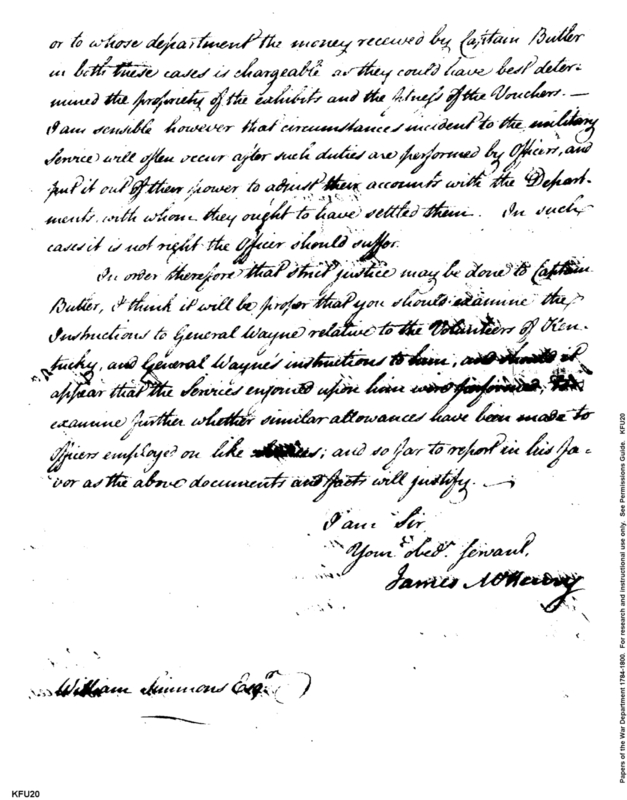 or to whose department the money received by Captain Butler
in both these cases is chargeable as they could have best deter-
mined the propriety of the exhibits and the fitness of the Vouchers. —
I am sensible however that circumstances incident to the military
Service will often occur after such duties are performed by Officers, and
put it out of their power to adjust their accounts with the Depart-
ments with whom they ought to have settled them. In such
cases it is not right the Officer should suffer.
In order therefore that strict justice may be done to Captain
Butler, I think it will be proper that you should examine the
Instructions to General Wayne relative to the Volunteers of Ken-
tucky, and General Wayne's instructions to him, and should it
appear that the Services enjoined upon him were performed,
examine further whether similar allowances have been made to
Officers employed on like; and so far to report in his fa-
vor as the above documents and facts will justify. —
I am Sir
Your obedt. Servant,
James McHenry
William Simmons Esqr
KFU20
Papers of the War Department 1784-1800. For research and instructional use only. See Permissions Guide. KFU20